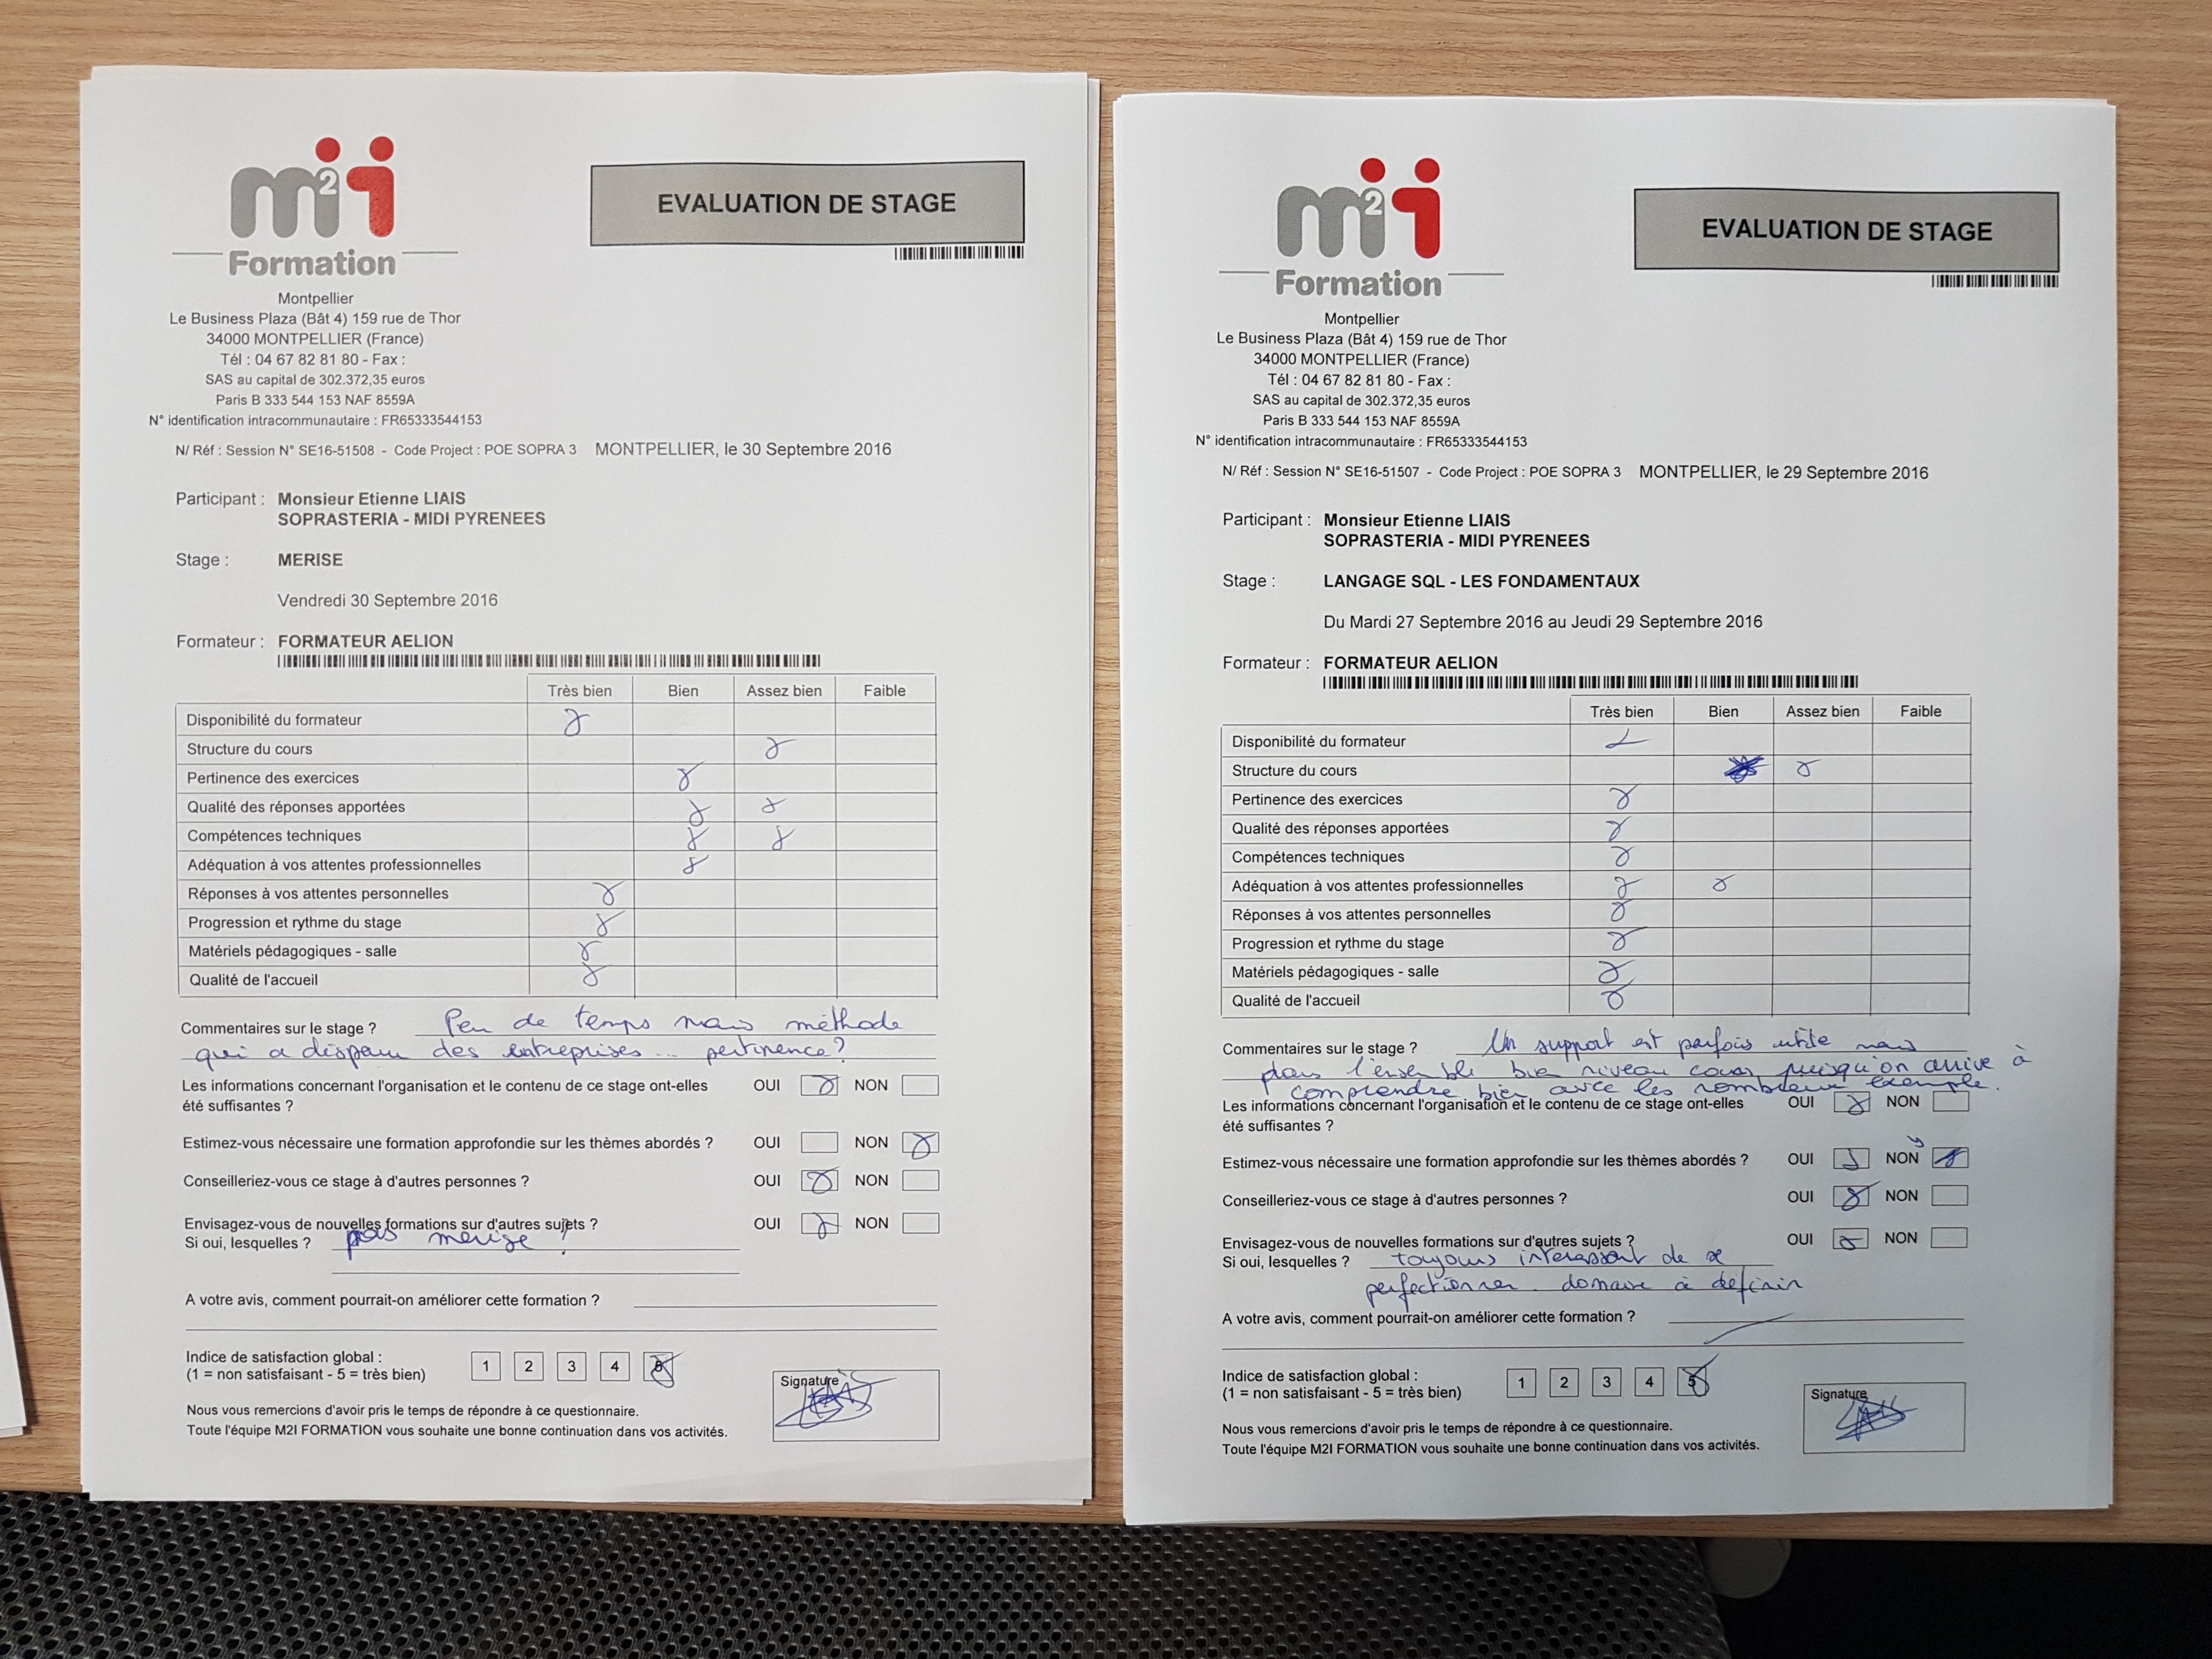 m2i
Formation
EVALUATION DE STAGE
Montpellier
Le Business Plaza (Bât 4) 159 rue de Thor
34000 MONTPELLIER (France)
Tél : 04 67 82 81 80 - Fax :
SAS au capital de 302.372,35 euros
Paris B 333 544 153 NAF 8559A
N° identification intracommunautaire : FR65333544153
N/ Réf : Session N° SE16-51508 - Code Project : POE SOPRA 3 MONTPELLIER, le 30 Septembre 2016
Participant : Monsieur Etienne LIAIS
SOPRASTERIA - MIDI PYRENEES
Stage : MERISE
Vendredi 30 Septembre 2016
Formateur : FORMATEUR AELION
Très bien Bien Assez bien Faible
Disponibilité du formateur
Structure du cours
Pertinence des exercices
Qualité des réponses apportées
Compétences techniques
Adéquation à vos attentes professionnelles
Réponses à vos attentes personnelles
Progression et rythme du stage
Matériels pédagogiques - salle
Qualité de l'accueil
Commentaires sur le stage ? Peu de temps mais méthode
qui a disparu des entreprises ... pertinence ?
Les informations concernant l'organisation et le contenu de ce stage ont-elles OUI NON
été suffisantes ?
Estimez-vous nécessaire une formation approfondie sur les thèmes abordés ? OUI NON
Conseilleriez-vous ce stage à d'autres personnes ? OUI NON
Envisagez-vous de nouvelles formations sur d'autres sujets ? OUI NON
Si oui, lesquelles ? pas merise
A votre avis, comment pourrait-on améliorer cette formation ?
Indice de satisfaction global :
(1 = non satisfaisant - 5 = très bien) 1 2 3 4 5
Nous vous remercions d'avoir pris le temps de répondre à ce questionnaire.
Toute l'équipe M2I FORMATION vous souhaite une bonne continuation dans vos activités.
Signature
m2i
Formation
EVALUATION DE STAGE
Montpellier
Le Business Plaza (Bât 4) 159 rue de Thor
34000 MONTPELLIER (France)
Tél : 04 67 82 81 80 - Fax :
SAS au capital de 302.372,35 euros
Paris B 333 544 153 NAF 8559A
N° identification intracommunautaire : FR65333544153
N/ Réf : Session N° SE16-51507 - Code Project : POE SOPRA 3 MONTPELLIER, le 29 Septembre 2016
Participant : Monsieur Etienne LIAIS
SOPRASTERIA - MIDI PYRENEES
Stage : LANGAGE SQL - LES FONDAMENTAUX
Du Mardi 27 Septembre 2016 au Jeudi 29 Septembre 2016
Formateur : FORMATEUR AELION
Très bien Bien Assez bien Faible
Disponibilité du formateur
Structure du cours
Pertinence des exercices
Qualité des réponses apportées
Compétences techniques
Adéquation à vos attentes professionnelles
Réponses à vos attentes personnelles
Progression et rythme du stage
Matériels pédagogiques - salle
Qualité de l'accueil
Commentaires sur le stage ? Un support est parfois utile mais
dans l'ensemble bien niveau cours puisqu'on arrive à
comprendre bien avec les nombreux exemple.
Les informations concernant l'organisation et le contenu de ce stage ont-elles OUI NON
été suffisantes ?
Estimez-vous nécessaire une formation approfondie sur les thèmes abordés ? OUI NON
Conseilleriez-vous ce stage à d'autres personnes ? OUI NON
Envisagez-vous de nouvelles formations sur d'autres sujets ? OUI NON
Si oui, lesquelles ? toujours interessant de se
perfectionner. domaine à definir
A votre avis, comment pourrait-on améliorer cette formation ?
Indice de satisfaction global :
(1 = non satisfaisant - 5 = très bien) 1 2 3 4 5
Nous vous remercions d'avoir pris le temps de répondre à ce questionnaire.
Toute l'équipe M2I FORMATION vous souhaite une bonne continuation dans vos activités.
Signature